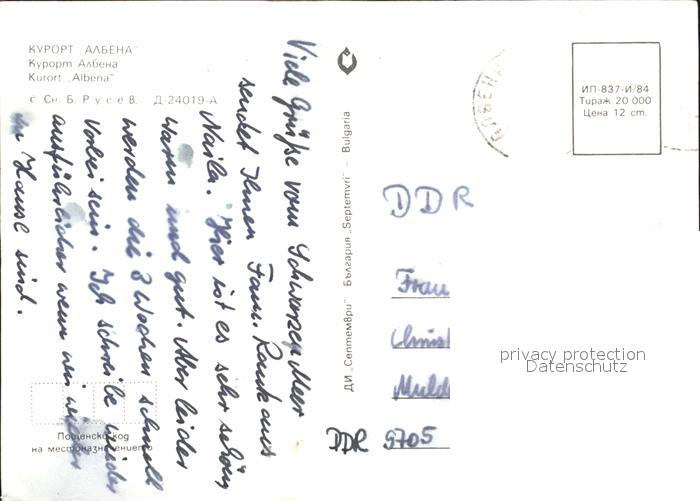 КУРОРТ „АЛБЕНА"
Курорт Албена
Kurort „Albena"
с Сн. Б. Русев. Д-24019-А
Viele Grüße vom Schwarzen Meer
sendet Ihnen Fam. aus
Naila. Hier ist es sehr schön
warm und gut. Aber leider
werden die 3 Wochen schnell
vorbei sein. Ich schreibe wieder
ausführlicher wenn wir wieder
zu Hause sind.
Пощенски код
на местоназначението
ДИ „Септември" България „Septemvri" – Bulgaria
АЛБЕНА
ИП-837-И/84
Тираж 20 000
Цена 12 ст.
DDR
Frau
Christ
Muld
DDR 9705
privacy protection
Datenschutz